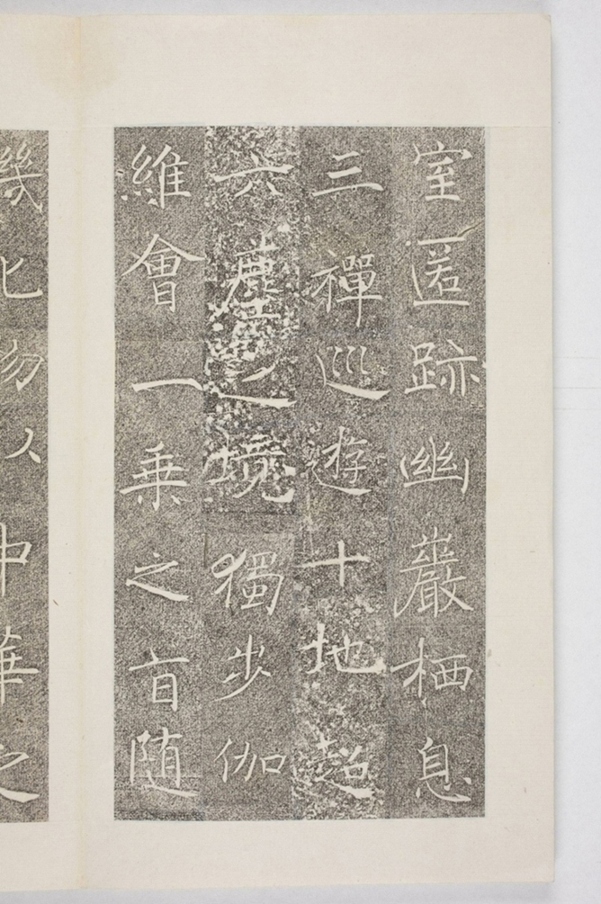 室匿跡幽巖栖息
三禪巡遊十地超
六塵之境獨步伽
維會一乘之旨隨
幾化物以中華之